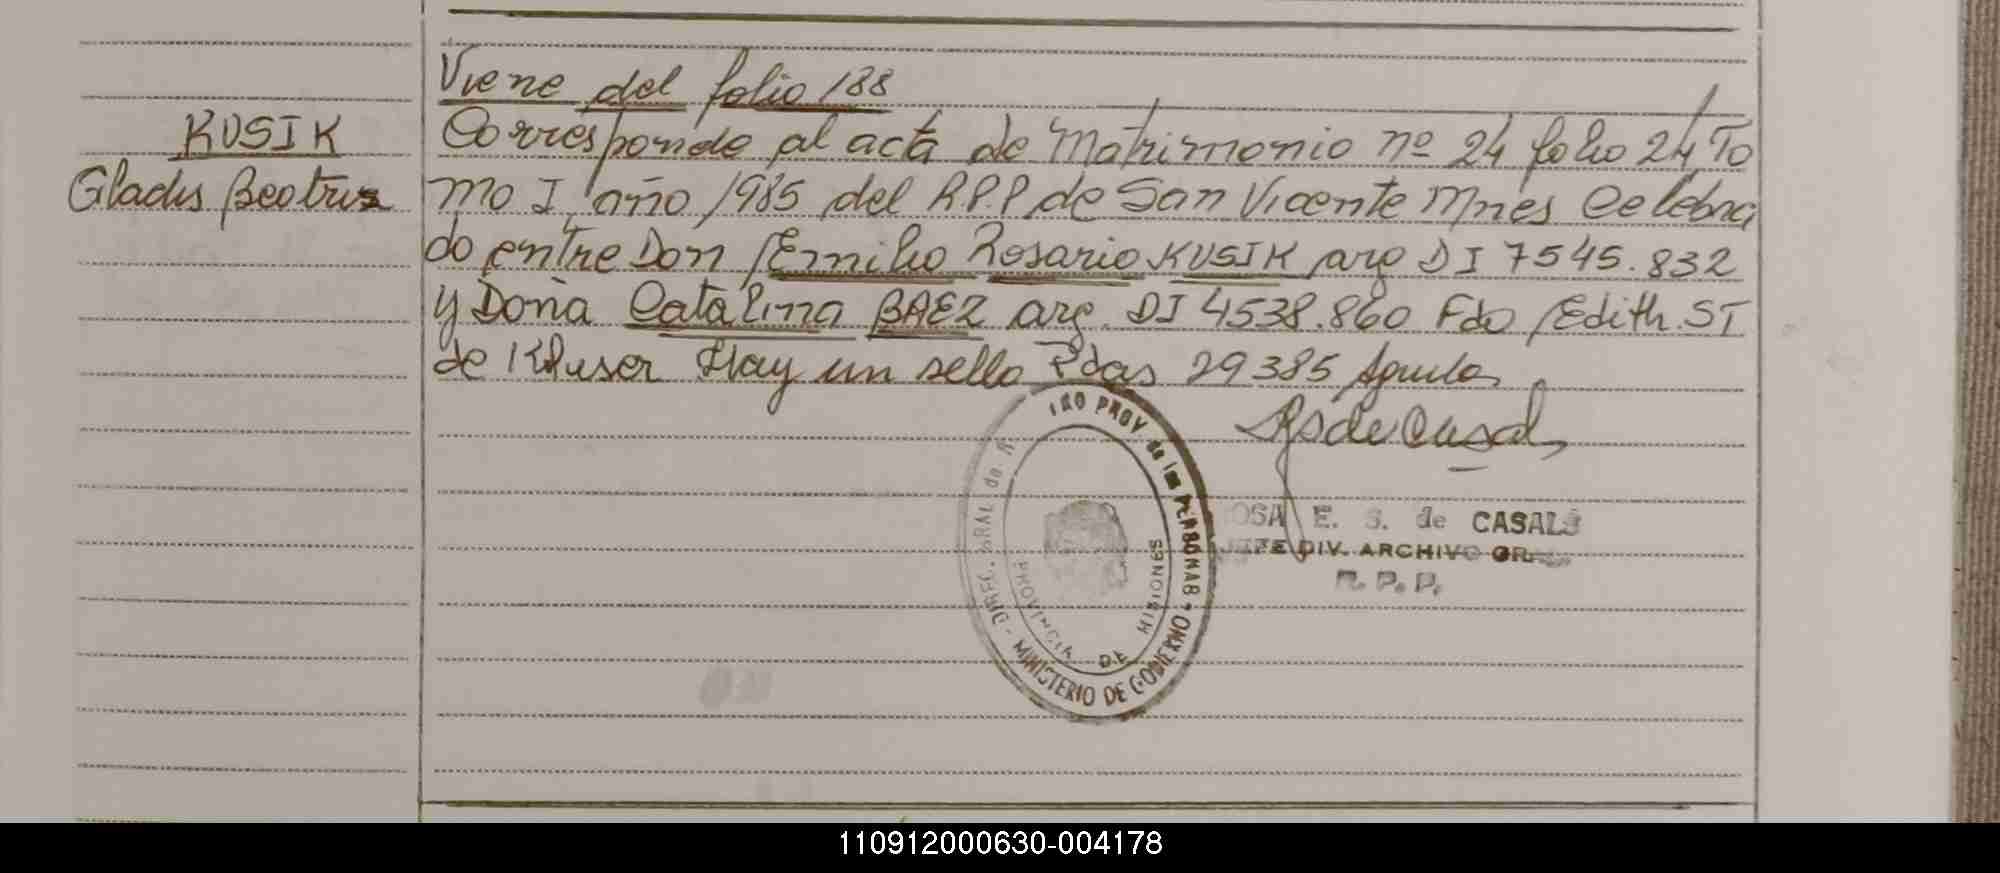 Viene del folio 188
KUSIK
Gladis Beatriz
Corresponde al acta de Matrimonio nº 24 folio 24 To
mo I, año 1985 del R.P.P. de San Vicente Mnes Celebra
do entre Don Emilio Rosario KUSIK arg DI 7545.832
y Doña Catalina BAEZ arg. DI 4538.860 Fdo Edith. ST
de Kluser Hay un sello Pdas 29385
RS de Casals
OSA E. S. de CASALS
JEFE DIV. ARCHIVO GR.
R. P. P.
DIREC. GRAL de R PROV de las PERSONAS - MINISTERIO DE GOBIERNO
PROVINCIA DE MISIONES
110912000630-004178